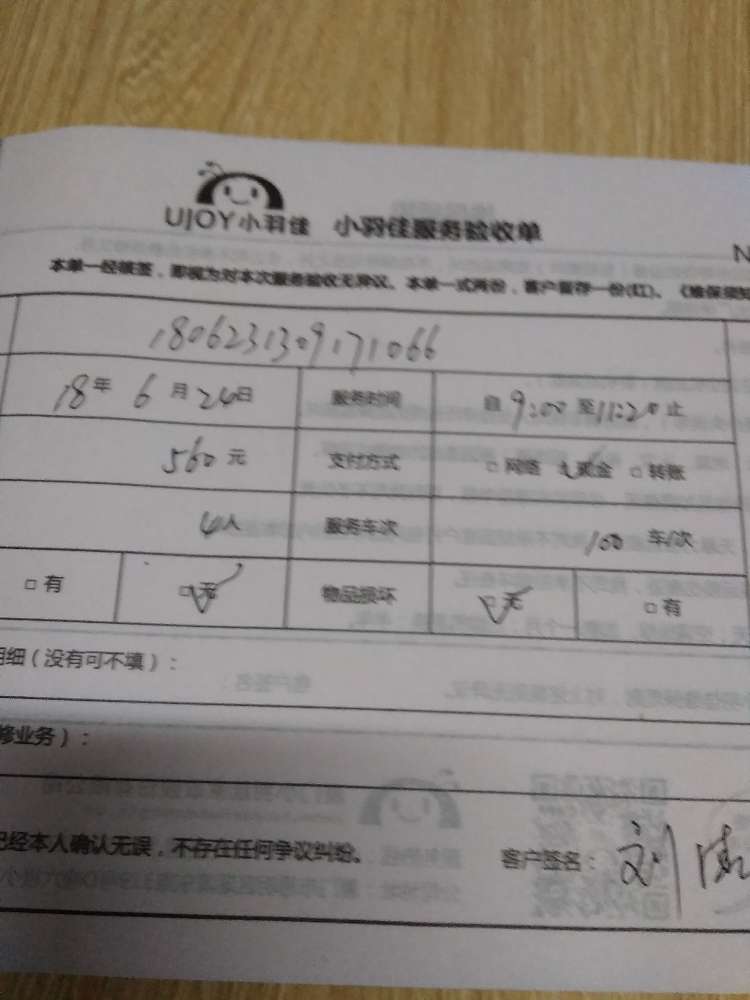 UJOY小羽佳 小羽佳服务验收单
N
本单一经领签，即视为对本次服务验收无异议。本单一式两份，客户留存一份(红)。《维保须知
180623130917 1066
18年 6月 24日 服务时间 自 9:00 至 11:20 止
560元 支付方式 □网络 现金 □转账
4人 服务车次 100 车/次
□有 □无 物品损坏 □无 □有
明细（没有可不填）：
修业务）：
已经本人确认无误，不存在任何争议纠纷。 客户签名： 刘